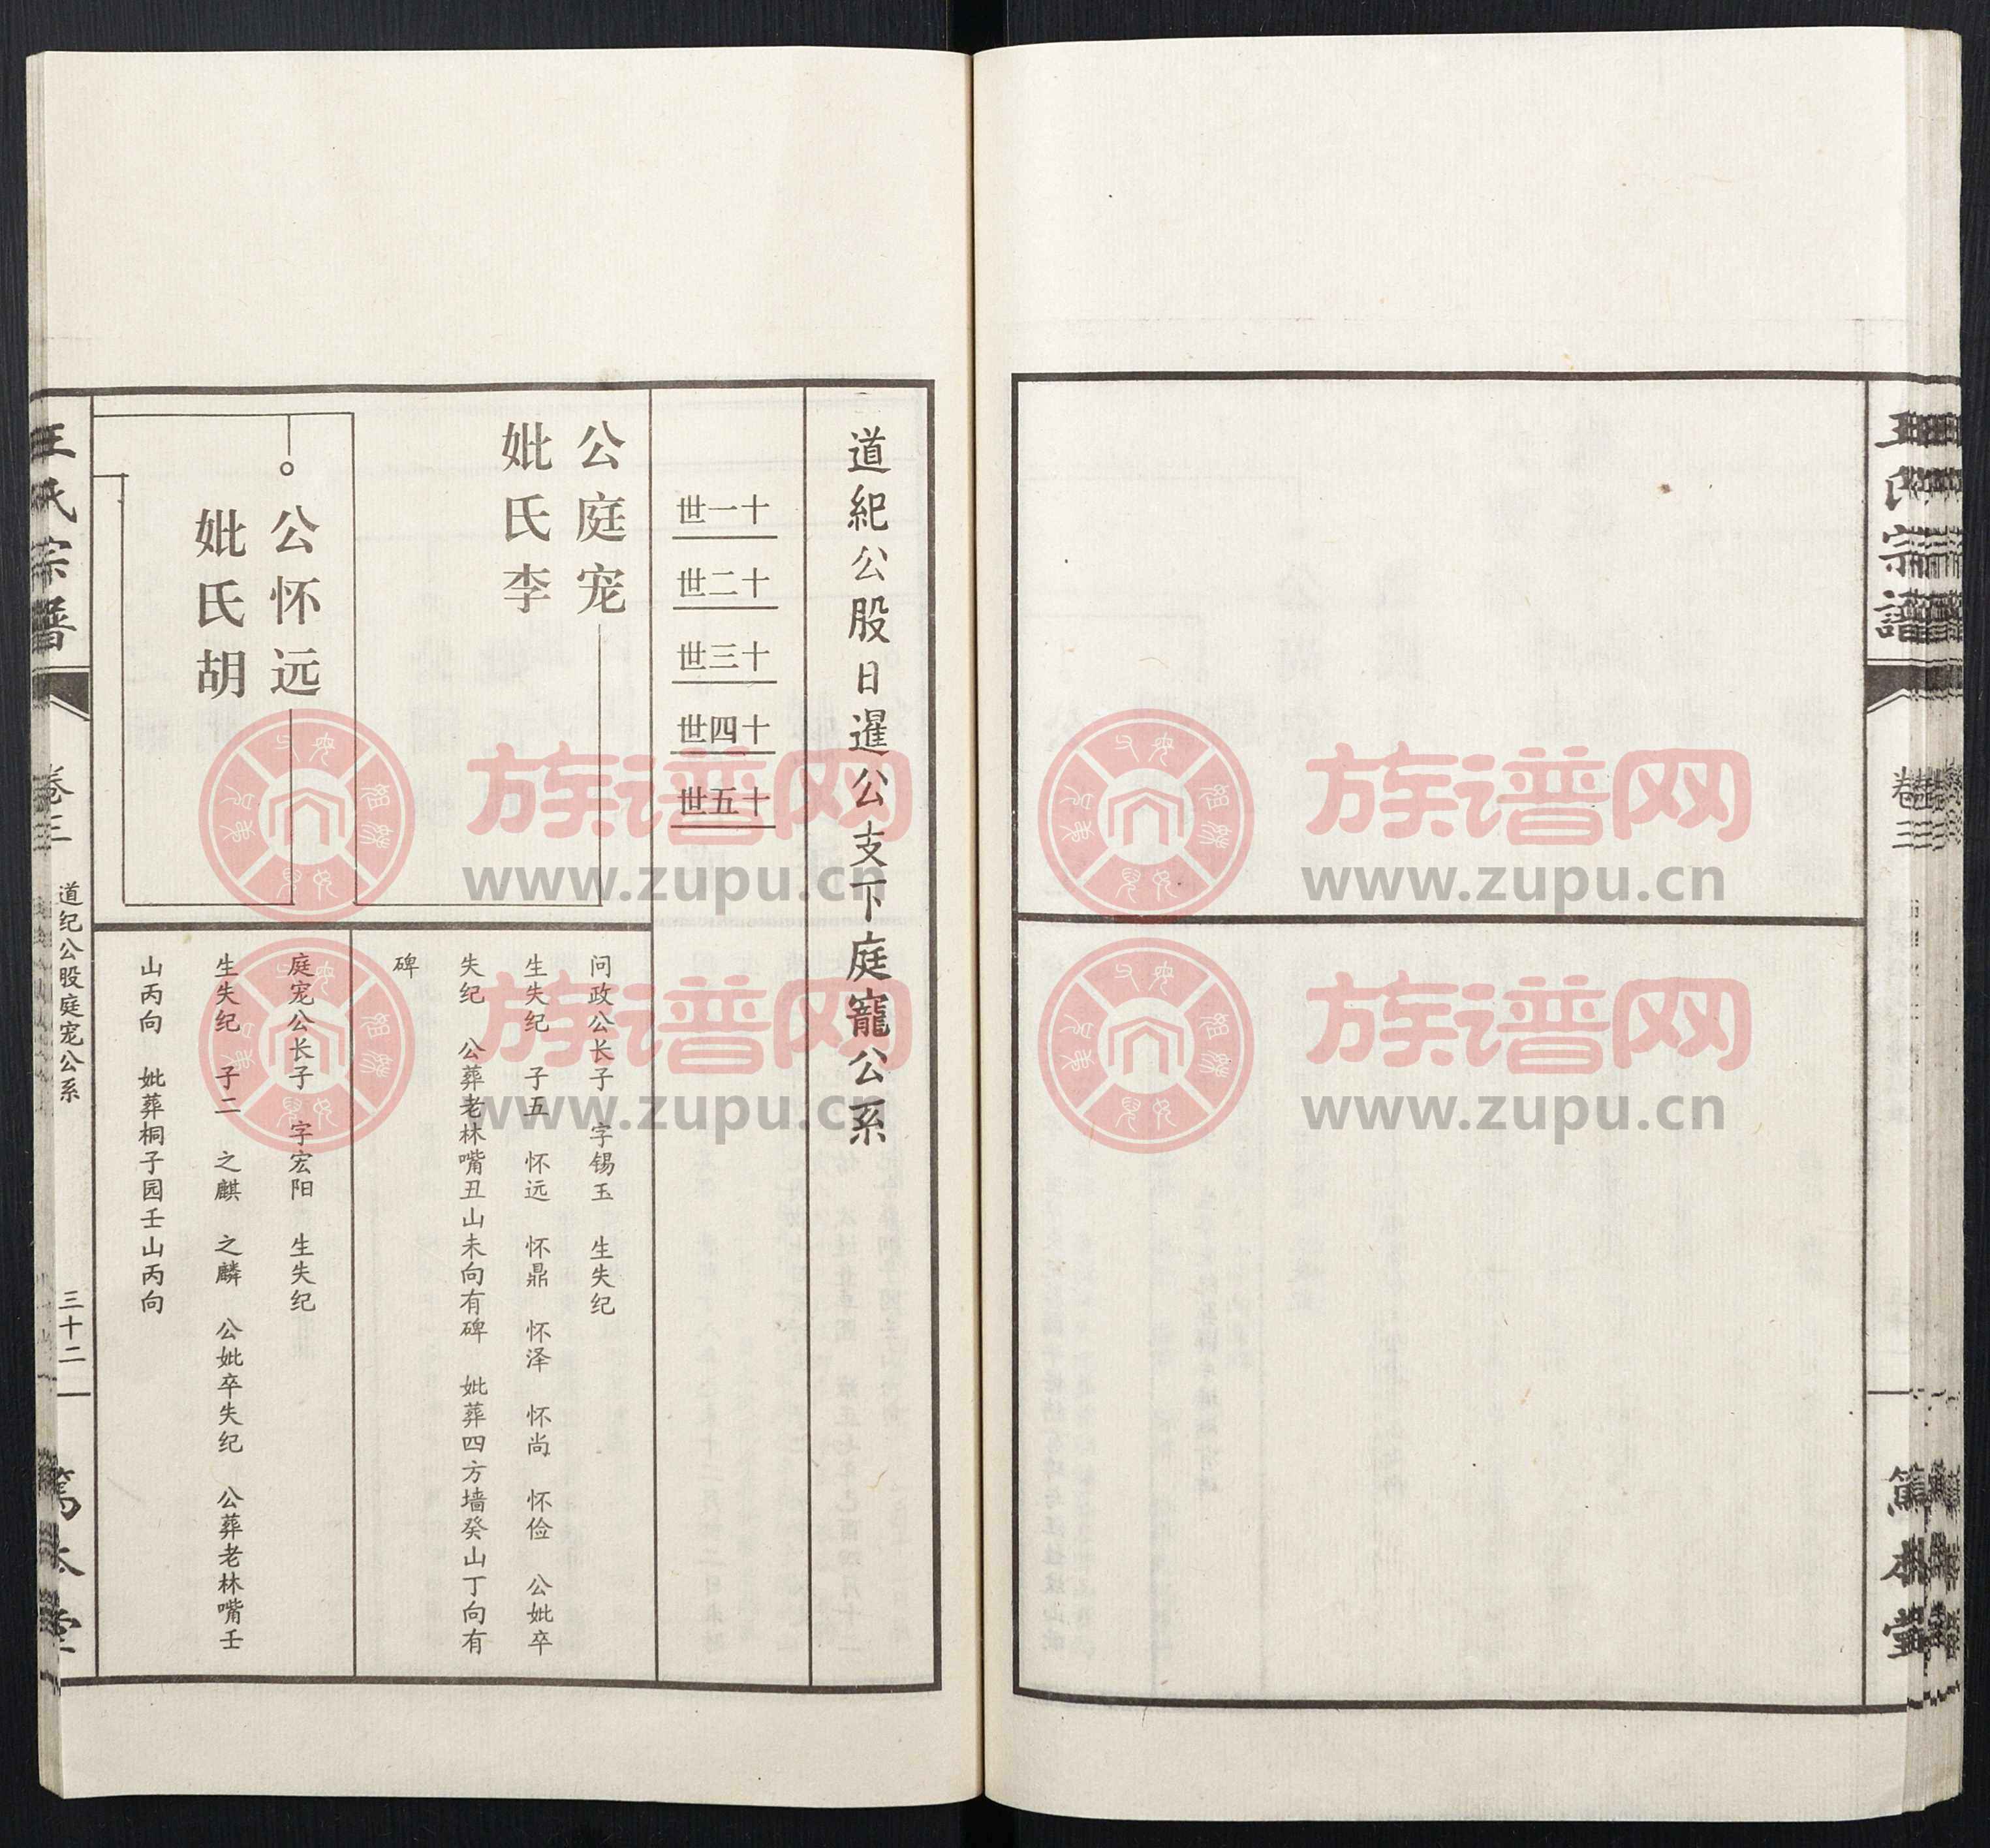 王氏宗譜
卷三
篤本堂
道紀公股日暹公支下庭寵公系
十一世
十二世
十三世
十四世
十五世
公庭宠
妣氏李
问政公长子 字锡玉 生失纪
生失纪 子五 怀远 怀鼎 怀泽 怀尚 怀俭 公妣卒
失纪 公葬老林嘴丑山未向有碑 妣葬四方墙癸山丁向有
碑
公怀远
妣氏胡
庭宠公长子 字宏阳 生失纪
生失纪 子二 之麒 之麟 公妣卒失纪 公葬老林嘴壬
山丙向 妣葬桐子园壬山丙向
王氏宗譜
卷三
道纪公股庭宠公系
三十二
篤本堂
族谱网
www.zupu.cn
族谱网
www.zupu.cn
族谱网
www.zupu.cn
族谱网
www.zupu.cn